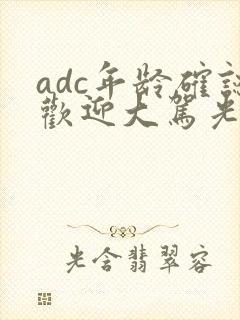 adc年龄確認
歡迎大駕光
光含翡翠容